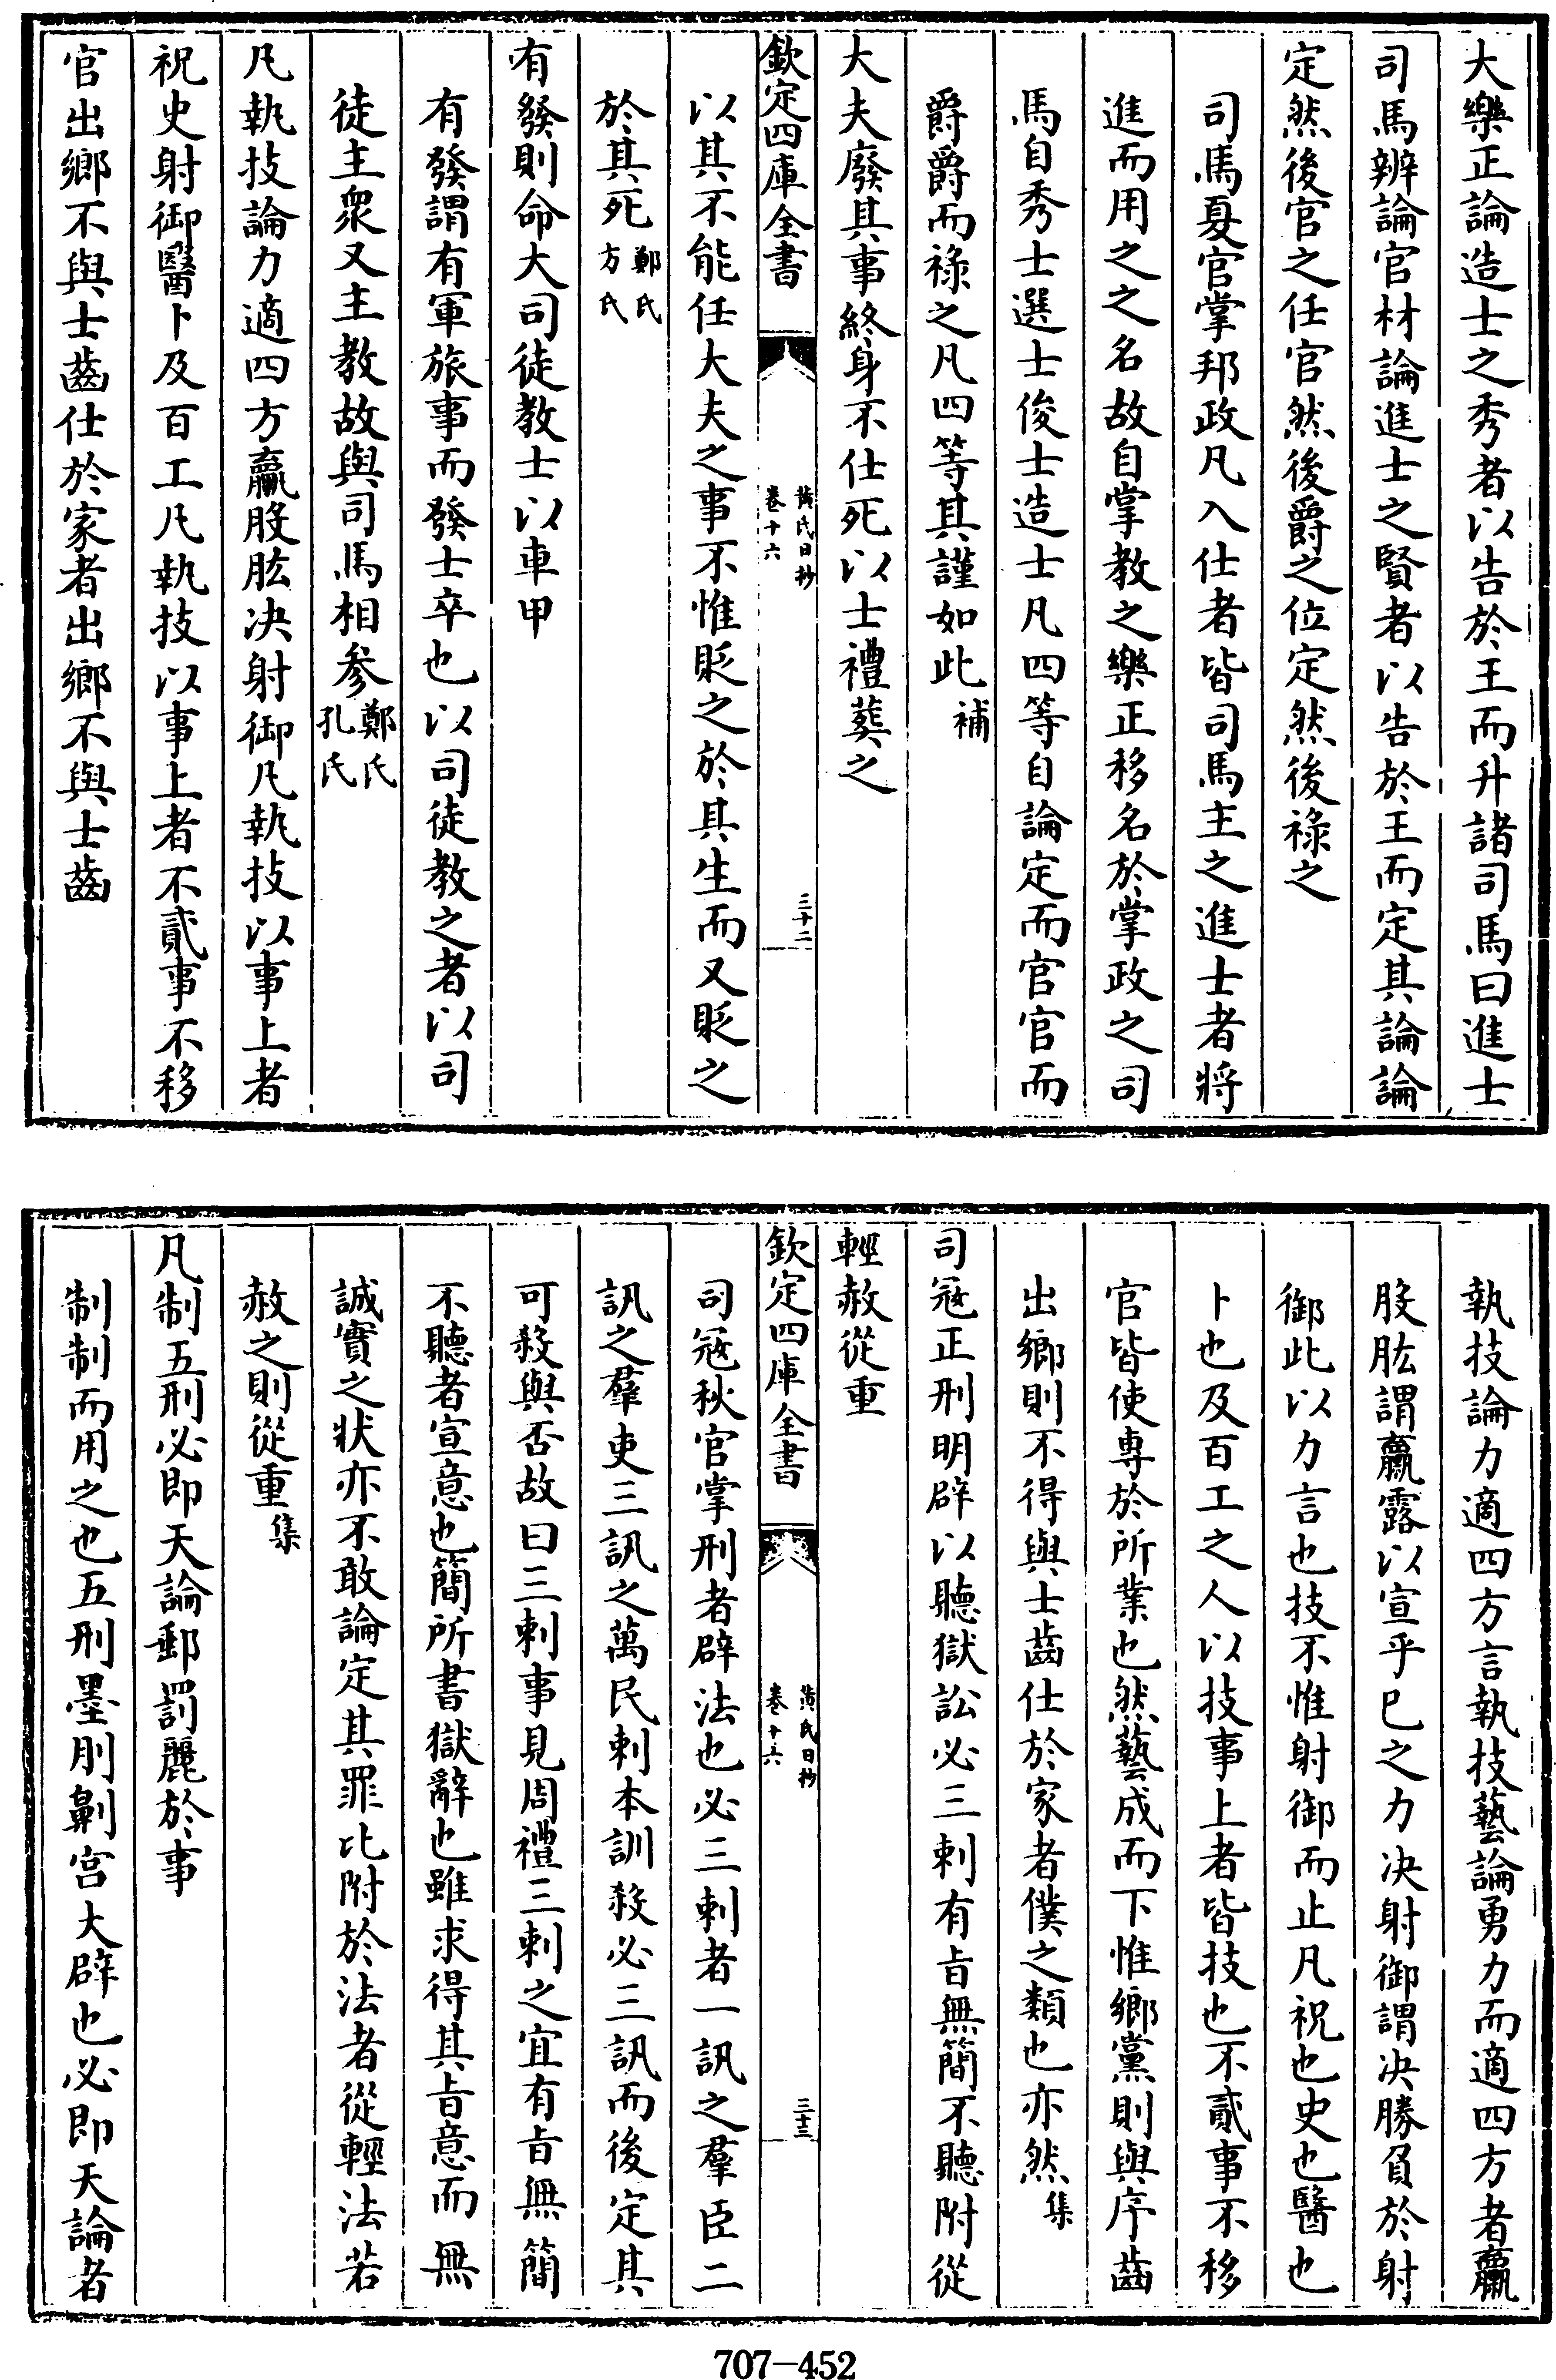 大樂正論造士之秀者以告於王而升諸司馬曰進士
司馬辨論官材論進士之賢者以告於王而定其論論
定然後官之任官然後爵之位定然後祿之
司馬夏官掌邦政凡入仕者皆司馬主之進士者將
進而用之之名故自掌教之樂正移名於掌政之司
馬自秀士選士俊士造士凡四等自論定而官官而
爵爵而祿之凡四等其謹如此補
大夫廢其事終身不仕死以士禮葬之
欽定四庫全書
黃氏日抄
卷十六
三十二
以其不能任大夫之事不惟貶之於其生而又貶之
於其死鄭氏方氏
有發則命大司徒教士以車甲
有發謂有軍旅事而發士卒也以司徒教之者以司
徒主衆又主教故與司馬相參鄭氏孔氏
凡執技論力適四方羸股肱決射御凡執技以事上者
祝史射御醫卜及百工凡執技以事上者不貳事不移
官出鄉不與士齒仕於家者出鄉不與士齒
執技論力適四方言執技藝論勇力而適四方者羸
股肱謂羸露以宣乎巳之力决射御謂决勝負於射
御此以力言也技不惟射御而止凡祝也史也醫也
卜也及百工之人以技事上者皆技也不貳事不移
官皆使專於所業也然藝成而下惟鄉黨則與序齒
出鄉則不得與士齒仕於家者僕之類也亦然集
司寇正刑明辟以聽獄訟必三刺有旨無簡不聽附從
輕赦從重
欽定四庫全書
黃氏日抄
卷十六
三十三
司寇秋官掌刑者辟法也必三刺者一訊之羣臣二
訊之羣吏三訊之萬民刺本訓殺必三訊而後定其
可殺與否故曰三刺事見周禮三刺之宜有旨無簡
不聽者宣意也簡所書獄辭也雖求得其旨意而無
誠實之狀亦不敢論定其罪比附於法者從輕法若
赦之則從重集
凡制五刑必即天論郵罰麗於事
制制而用之也五刑墨刖劓宮大辟也必即天論者
707-452